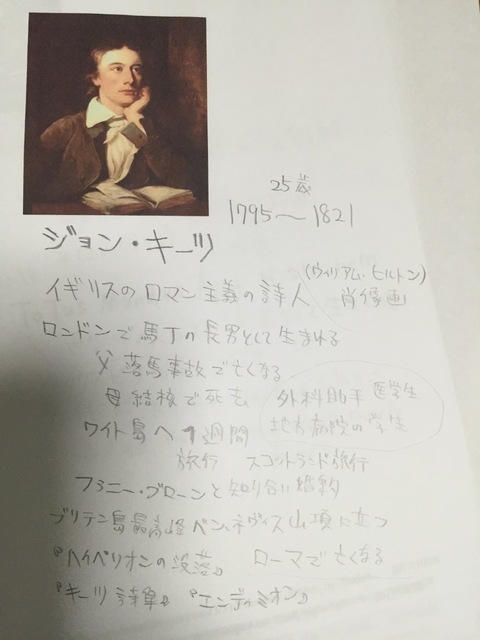 25歳
1795〜1821
ジョン・キーツ
(ウィリアム・ヒルトン)
イギリスのロマン主義の詩人 肖像画
ロンドンで馬丁の長男として生まれる
父 落馬事故で亡くなる
母 結核で死去 外科助手 医学生
地方病院の学生
ワイト島へ1週間
旅行 スコットランド旅行
ファニー・ブローンと知り合い婚約
ブリテン島最高峰ベン・ネヴィス山頂に立つ
『ハイペリオンの没落』 ローマで亡くなる
『キーツ詩集』 『エンディミオン』